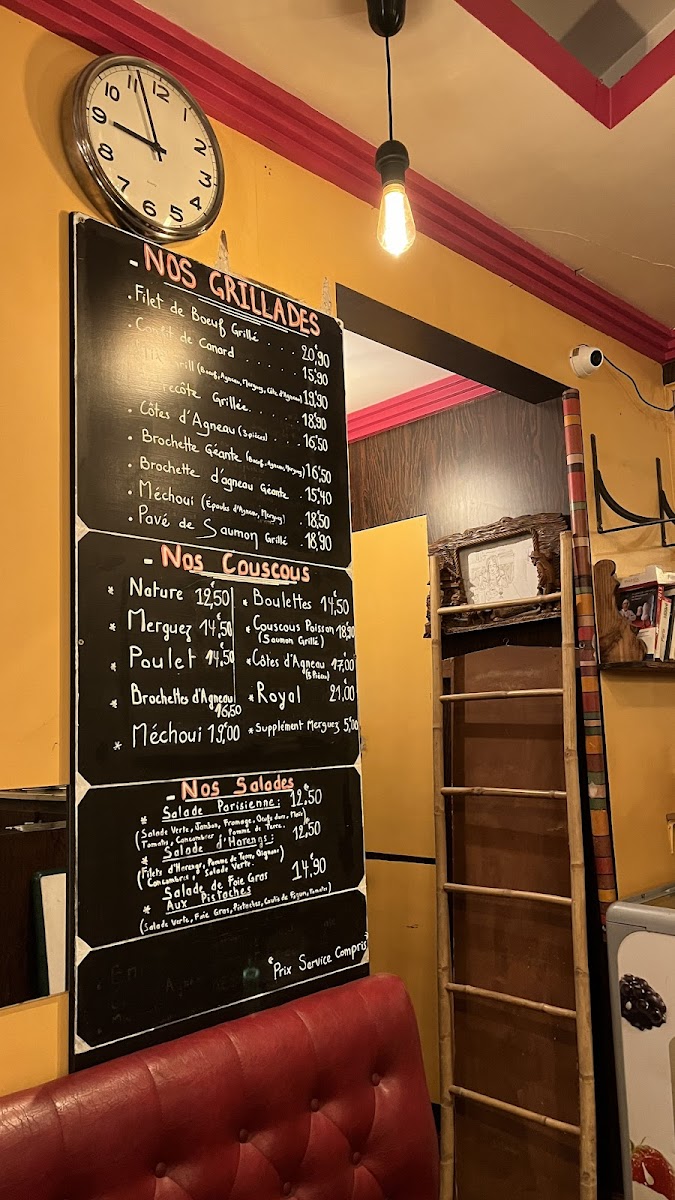 11 12 1
10 2
9 3
8 4
7 6 5
- NOS GRILLADES
. Filet de Boeuf Grillé .... 20€90
. Confit de Canard .... 15€90
Grill (Boeuf, Agneau, Merguez, Côte d'Agneau) 19€90
Grillée ... 18€90
. Côtes d'Agneau (3 pièces) ... 16€50
. Brochette Géante (Boeuf, Agneau, Merguez) 16€50
. Brochette d'agneau Géante . 15€40
. Méchoui (Épaule d'Agneau, Merguez) . 18€50
. Pavé de Saumon Grillé 18€90
- Nos Couscous
* Nature 12€50
* Merguez 14€50
* Poulet 14€50
* Brochettes d'Agneau 16€50
* Méchoui 19€00
* Boulettes 14€50
* Couscous Poisson 18€90
(Saumon Grillé)
* Côtes d'Agneau 17€00
(3 Pièces)
* Royal 21€00
* Supplément Merguez 5€00
- Nos Salades
* Salade Parisienne: 12€50
(Salade Verte, Jambon, Fromage, Oeufs durs, Maïs)
Tomate, Concombres, Pomme de Terre.
* Salade d'Harengs: 12€50
(Filets d'Harengs, Pomme de Terre, Oignons)
Concombres, Salade Verte.
Salade de Foie Gras 14€90
* Aux Pistaches
(Salade Verte, Foie Gras, Pistaches, Confis de Figues, Tomate)
*Prix Service Compris*